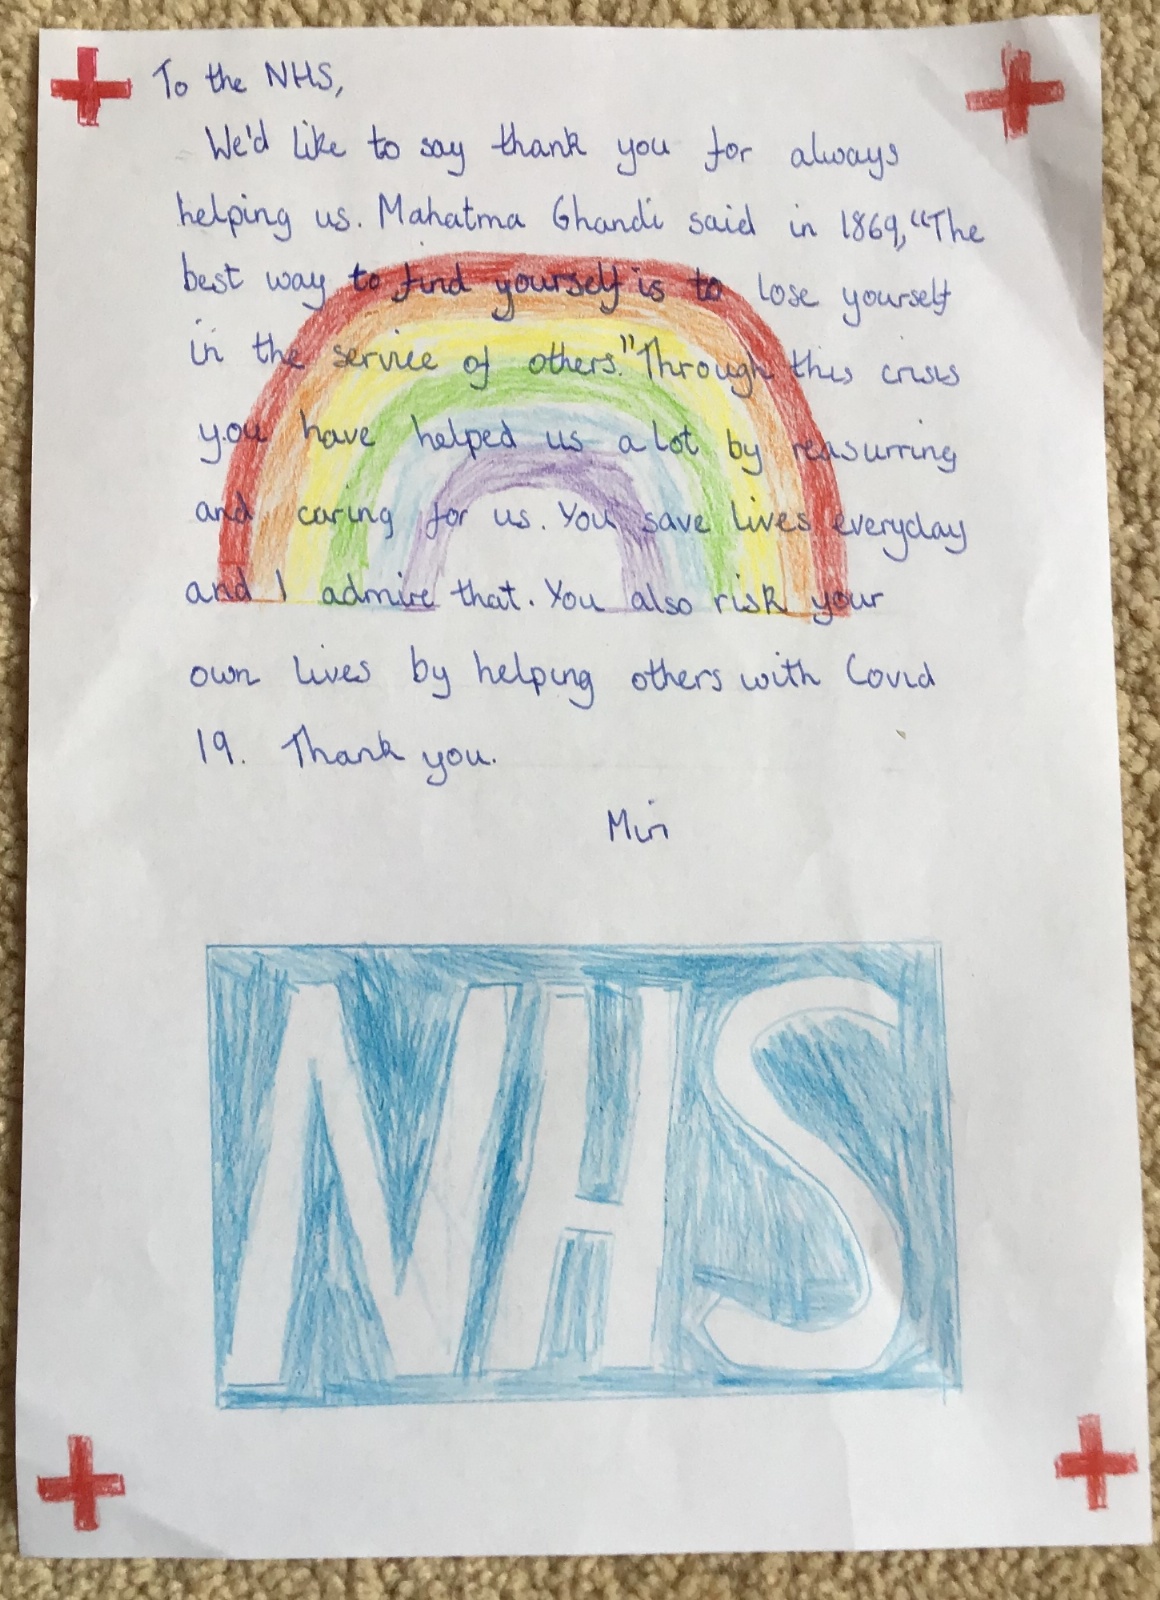 To the NHS,
We'd like to say thank you for always
helping us. Mahatma Ghandi said in 1869, "The
best way to find yourself is to lose yourself
in the service of others." Through this crisis
you have helped us a lot by reasurring
and caring for us. You save lives everyday
and I admire that. You also risk your
own lives by helping others with Covid
19. Thank you.
Miri
NHS